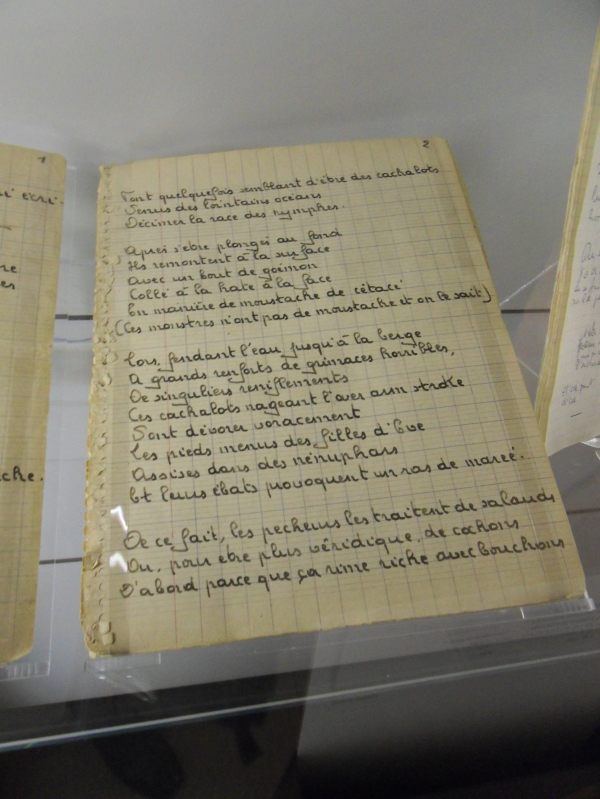 2
Font quelquefois semblant d'être des cachalots
Venus des lointains océans
Décimer la race des nymphes.
Après s'etre plongés au fond
Ils remontent à la surface
Avec un bout de goémon
Collé à la hate à la face
En manière de moustache de cétacé
(Ces monstres n'ont pas de moustache et on le sait)
Lors, fendant l'eau jusqu'à la berge
A grands renforts de grimaces horribles,
De singuliers reniflements
Ces cachalots nageant l'over arm stroke
Vont dévorer voracement
Les pieds menus des filles d'Eve
Assises dans des nénuphars
Et leurs ébats provoquent un ras de marée.
De ce fait, les pecheurs les traitent de salauds
Ou, pour etre plus véridique, de cochons
D'abord parce que ça rime riche avec bouchons